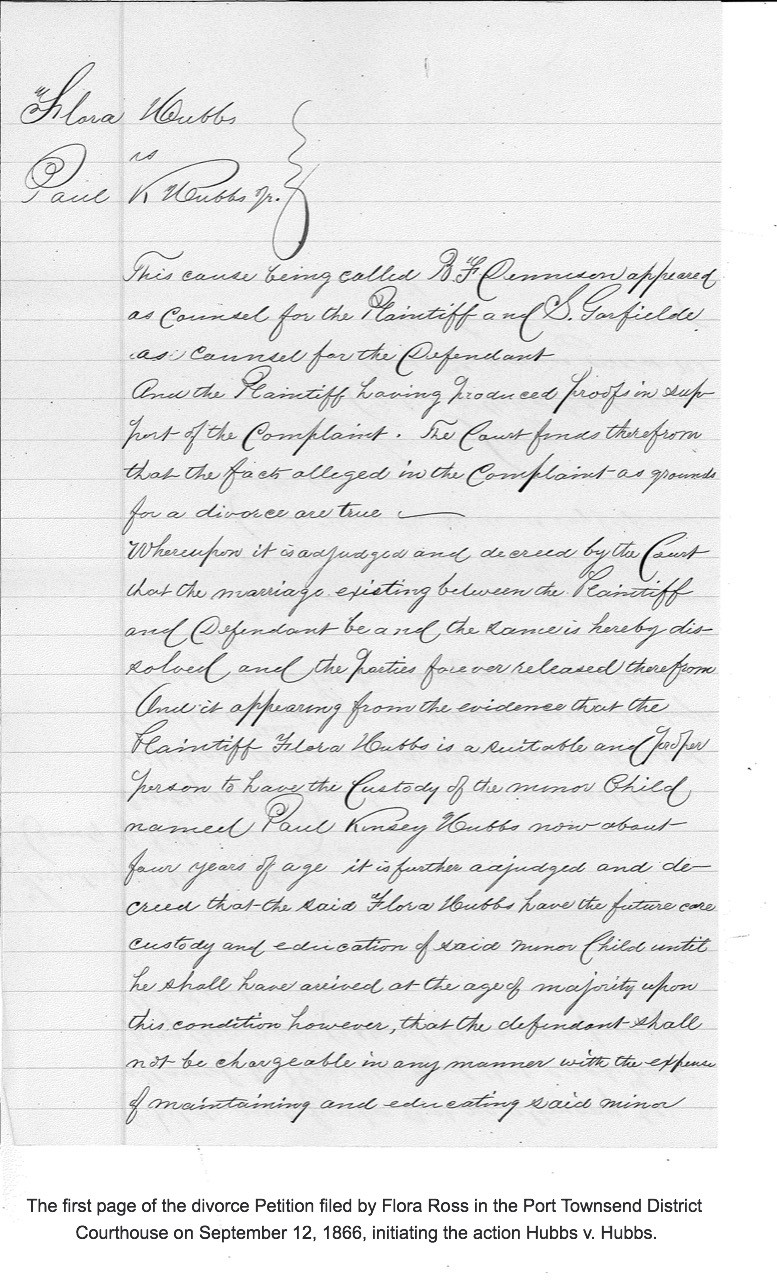 Flora Hubbs
vs
Paul K Hubbs Jr.
This cause being called B F Dennison appeared
as Counsel for the Plaintiff and S. Garfielde
as Counsel for the Defendant
And the Plaintiff having produced proofs in sup-
port of the Complaint. The Court finds therefrom
that the facts alleged in the Complaint as grounds
for a divorce are true
Whereupon it is adjudged and decreed by the Court
that the marriage existing between the Plaintiff
and Defendant be and the same is hereby dis-
solved and the parties forever released therefrom
And it appearing from the evidence that the
Plaintiff Flora Hubbs is a suitable and proper
person to have the Custody of the minor Child
named Paul Kinsey Hubbs now about
four years of age it is further adjudged and de-
creed that the said Flora Hubbs have the future care
custody and education of said minor Child until
he shall have arrived at the age of majority upon
this condition however, that the defendant shall
not be chargeable in any manner with the expense
of maintaining and educating said minor
The first page of the divorce Petition filed by Flora Ross in the Port Townsend District
Courthouse on September 12, 1866, initiating the action Hubbs v. Hubbs.